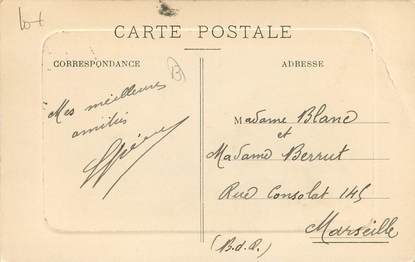 Lot
CARTE POSTALE
CORRESPONDANCE
ADRESSE
B
Mes meilleures
amitiés
Madame Blanc
et
Madame Berrut
Rue Consolat 145
Marseille
(B.d.R.)